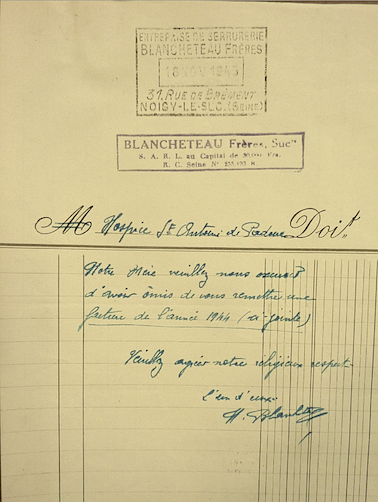 ENTREPRISE DE SERRURERIE
BLANCHETEAU FRÈRES
NOV 1945
31, RUE DE BRÉMENT
NOISY-LE-SEC (SEINE)
BLANCHETEAU Frères, Sucrs
S. A. R. L. au Capital de Frs.
R. C. Seine N°
M Hospice St Antoine de Padoue Doit
Notre Mère veuillez nous
d'avoir omis de vous remettre une
facture de l'année 1944 (ci-jointe)
Veuillez agréer notre religieux respect
l'un d'eux